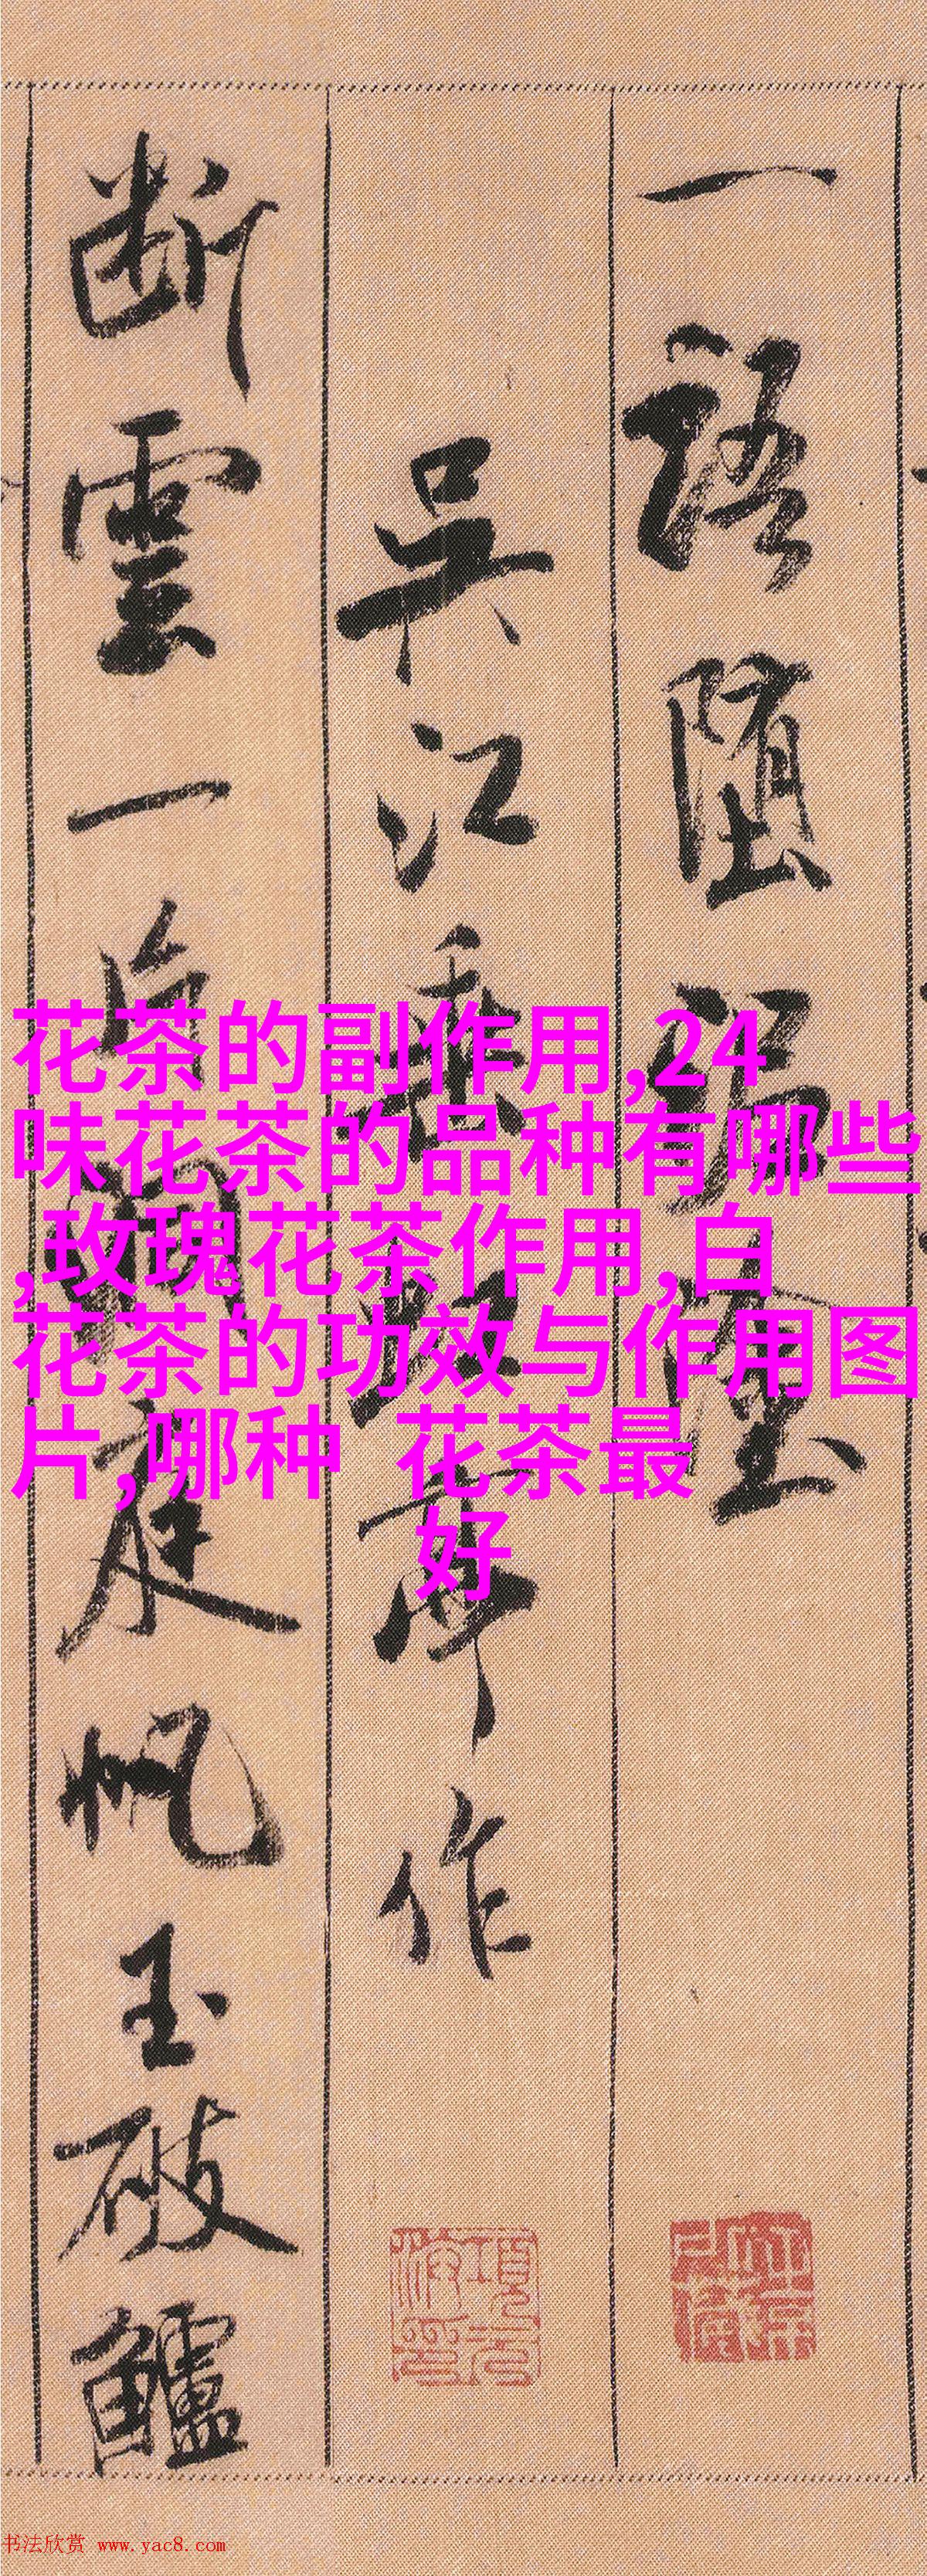 一語墮泥塗
吳江垂虹亭作
斷雲一片洞庭帆玉破鱸
花茶的副作用,24
味花茶的品种有哪些
,玫瑰花茶作用,白
花茶的功效与作用图
片,哪种 花茶最
好
书法欣赏 www.yac8.com